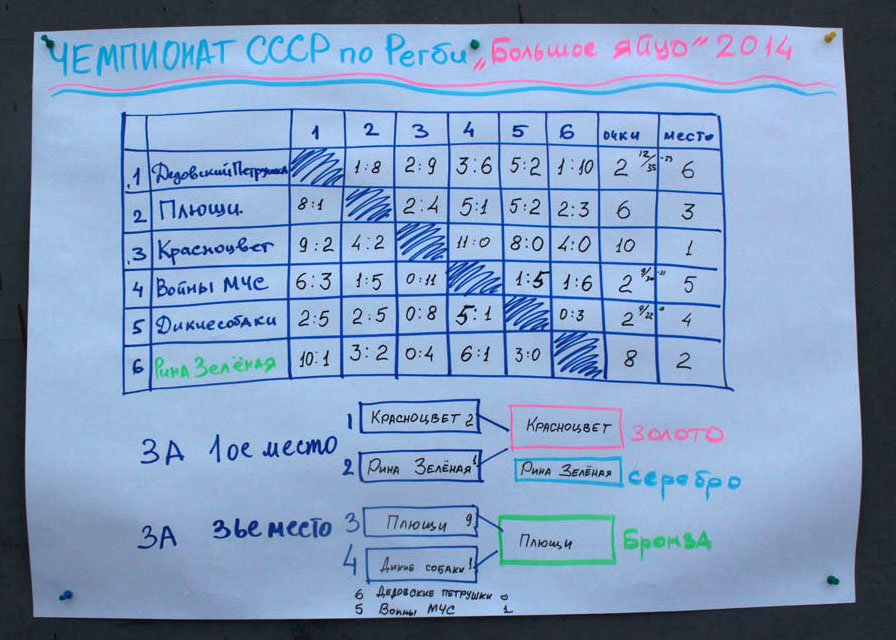 ЧЕМПИОНАТ СССР по Регби „Большое яйцо" 2014
1 2 3 4 5 6 очки место
1 ДедовскийПетрушка 1:8 2:9 3:6 5:2 1:10 2 12/35 -23 6
2 Плющи. 8:1 2:4 5:1 5:2 2:3 6 3
3 Красноцвет 9:2 4:2 11:0 8:0 4:0 10 1
4 Войны МЧС 6:3 1:5 0:11 1:5 1:6 2 5
5 Дикиесобаки 2:5 2:5 0:8 5:1 0:3 2 4
6 Рина Зелёная 10:1 3:2 0:4 6:1 3:0 8 2
1 Красноцвет 2 Красноцвет Золото
ЗА 1ое место
2 Рина Зелёная 1 Рина Зелёная серебро
3 Плющи 9
ЗА 3ье место Плющи Бронза
4 Дикие собаки 1
6 Дедовские петрушки 0
5 Войны МЧС 1